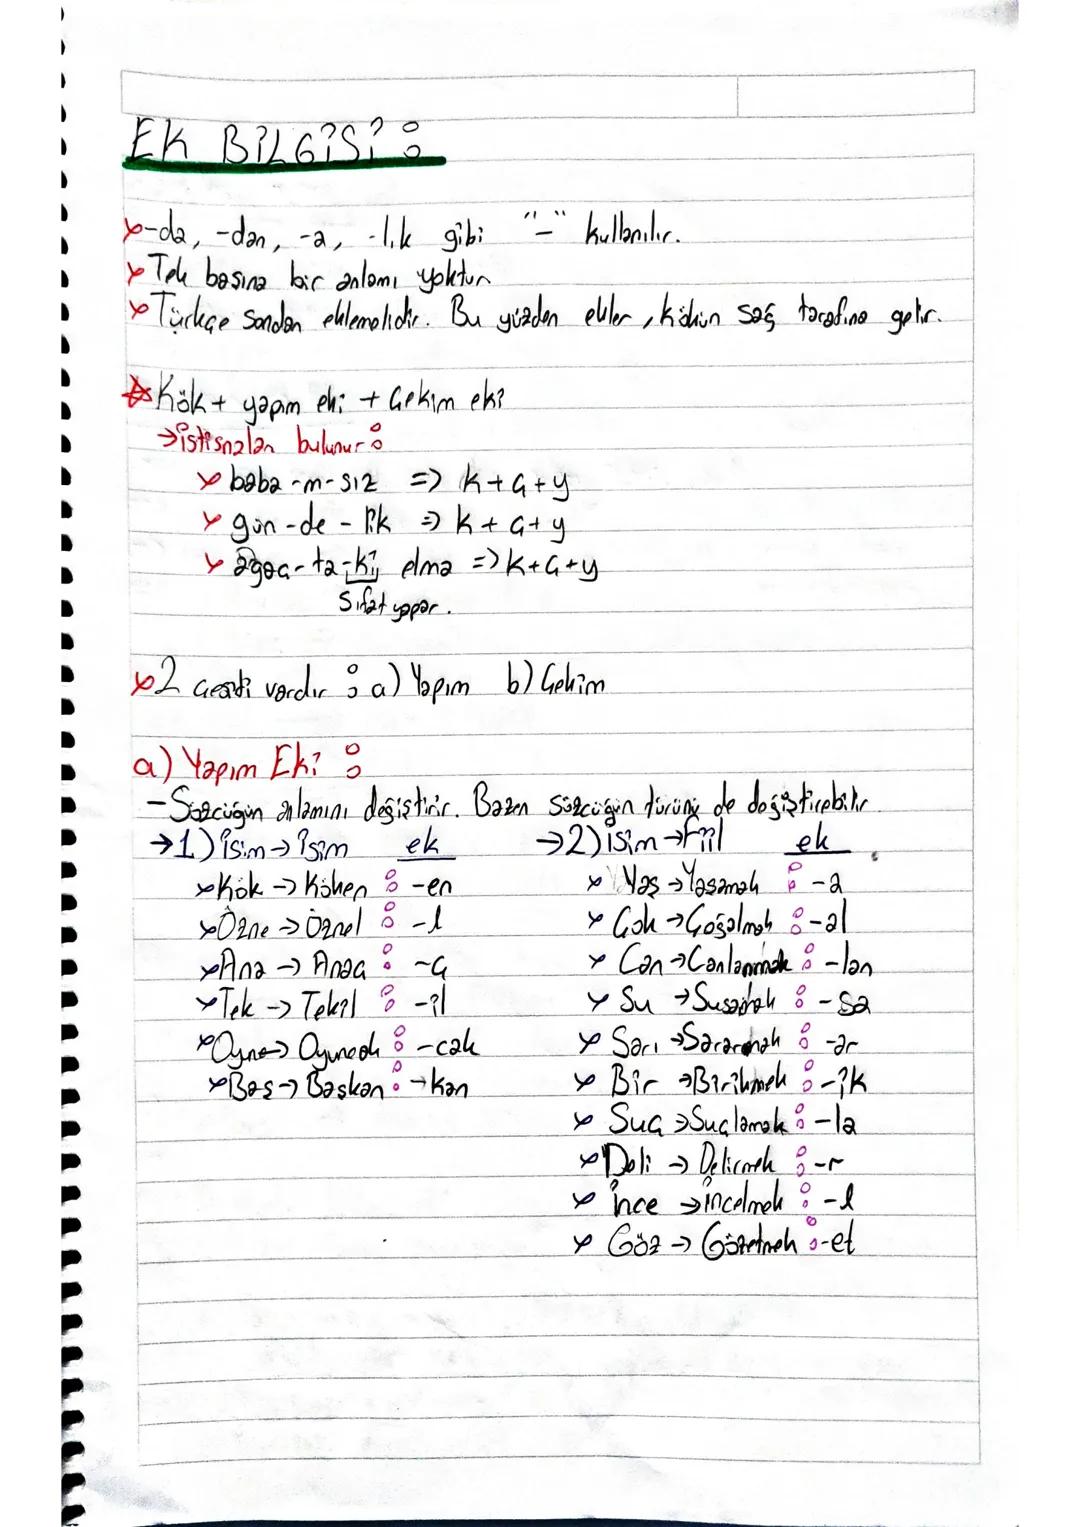 EK BİLGİSİ:
-da, -dan, -a, -lık gibi "-" kullanılır.
Tek başına bir anlamı yoktur
Türkçe sondan eklemelidir. Bu yüzden ekler, kökün sağ tarafına gelir.
Kök + yapım eki + Çekim eki
→ istisnaları bulunur:
baba-m-sız => K+Ç+y
gün-de-lik => K+Ç+y
ağaç-ta-ki elma => K+Ç+y
Sıfat yapar.
2 çeşidi vardır: a) Yapım b) Çekim
a) Yapım Eki:
- Sözcüğün anlamını değiştirir. Bazen sözcüğün türünü de değiştirebilir.
→1) İsim → İsim ek
Kök → Köken : -en
Özne → Öznel : -l
Ana → Anaç : -ç
Tek → Tekil : -il
Oyna → Oyuncak : -cak
Baş → Başkan : -kan
→2) isim → Fiil ek
Yaş → Yaşamak : -a
Çok → Çoğalmak : -al
Can → Canlanmak : -lan
Su → Susamak : -sa
Sarı → Sararmak : -ar
Bir → Birikmek : -ik
Suç → Suçlamak : -la
Deli → Delirmek : -r
İnce → incelmek : -l
Göz → Gözetmek : -et